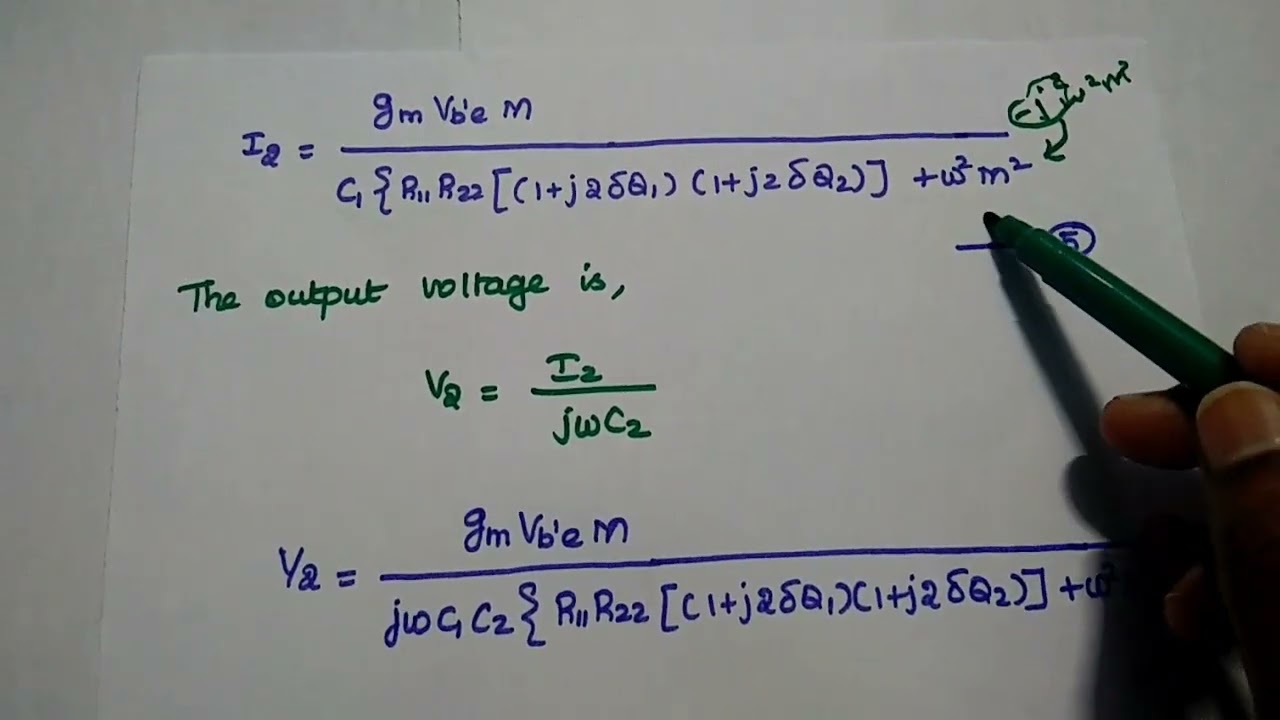 -j²jω²m²
gm Vb'e m
I2 =
C1{R11R22[(1+j2δQ1)(1+j2δQ2)] +ω²m²
5
The output voltage is,
V2 = I2
jωC2
gm Vb'e m
V2 =
jωC1C2{R11R22[(1+j2δQ1)(1+j2δQ2)]+ω²